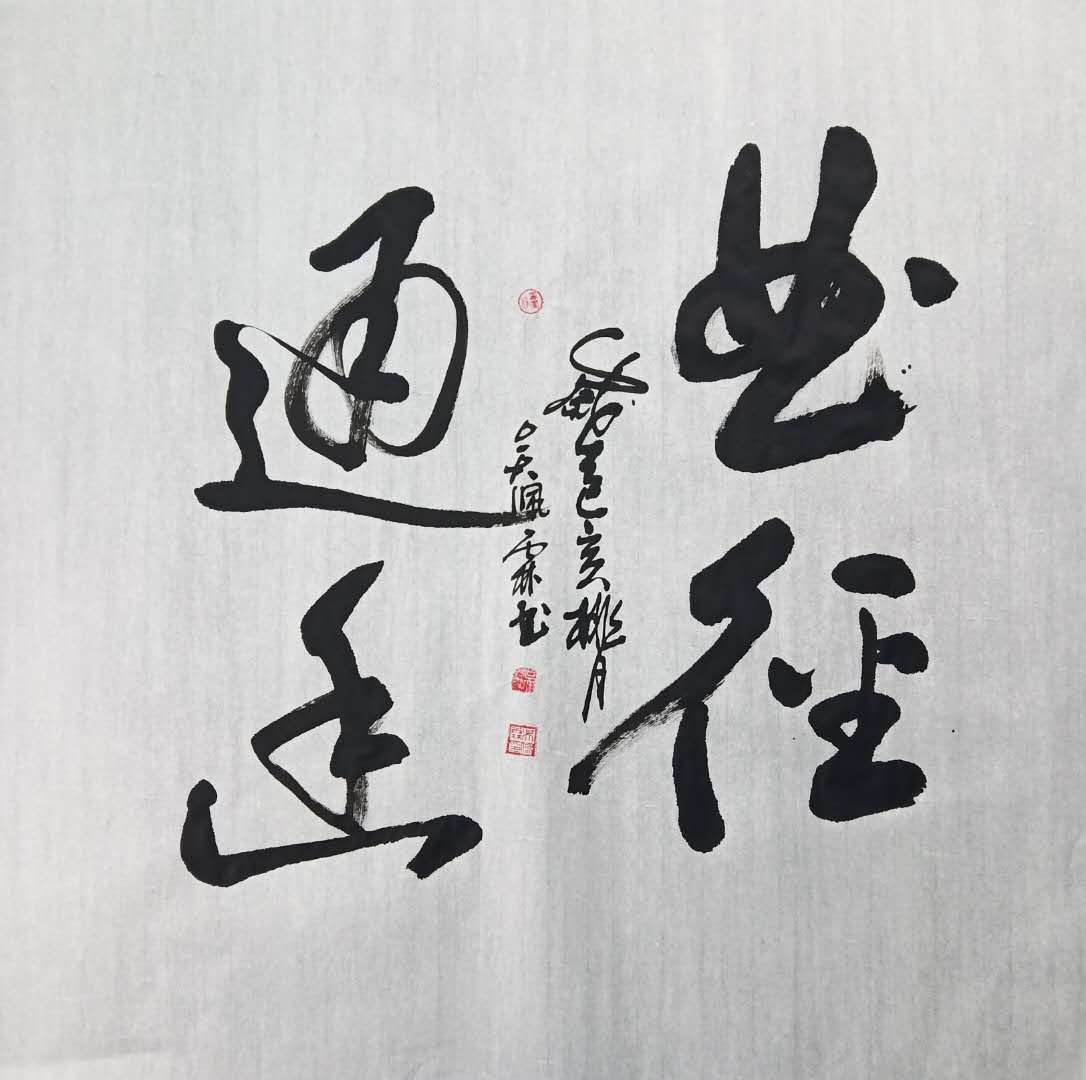 曲徑
通幽
歲在己亥桃月
吴佩霖书